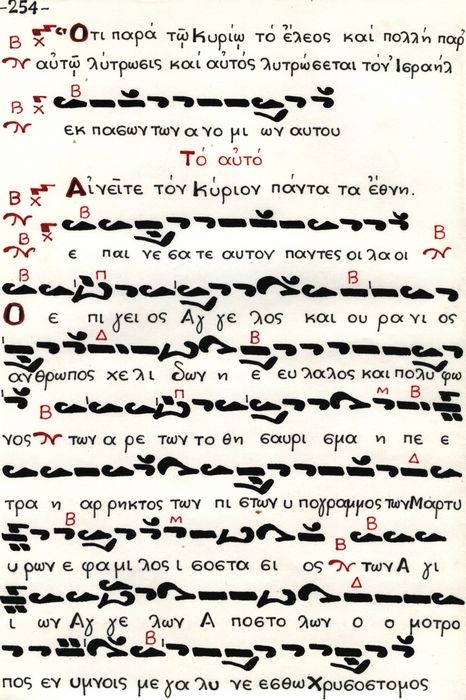 -254-
Β Ὅτι παρά τῷ Κυρίῳ τό ἔλεος καί πολλή παρ'
αὐτῷ λύτρωσις καί αὐτός λυτρώσεται τόν Ἰσραήλ
Β Β
εκ πασων των α νο μι ων αυτου
Τό αὐτό
Β Αἰνεῖτε τόν Κύριον πάντα τα ἔθνη.
Β
Β ε παι νε σα τε αυτον παντες οι λα οι Β
Β Π Β
Ο ε πι γει ος Αγ γε λος και ου ρα νι ος
Δ Β
ανθρωπος χε λι δων η ε ευ λαλος και πολυ φω
Β Π Μ Β
νος των α ρε των το θη σαυρι σμα η πε ε
Δ
τρα η αρ ρηκτος των πι στων υ πογραμμος των Μαρτυ
Β Μ Β Β
υ ρων ε φα μι λος ι σοστα σι ος Β των Α γι
Δ
ι ων Αγ γε λων Α ποστο λων ο ο μοτρο
Β
πος εν υμνοις με γα λυ νε εσθω Χρυσοστομος